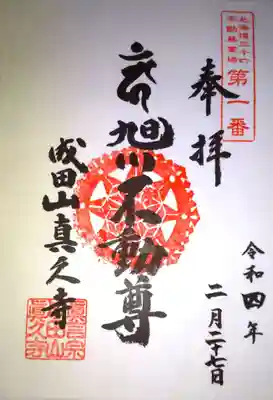 北海道三十六
不動尊霊場
第一番
奉拝
令和四年
二月二十七日
旭川不動尊
成田山真久寺
眞言宗
成田山
眞久寺